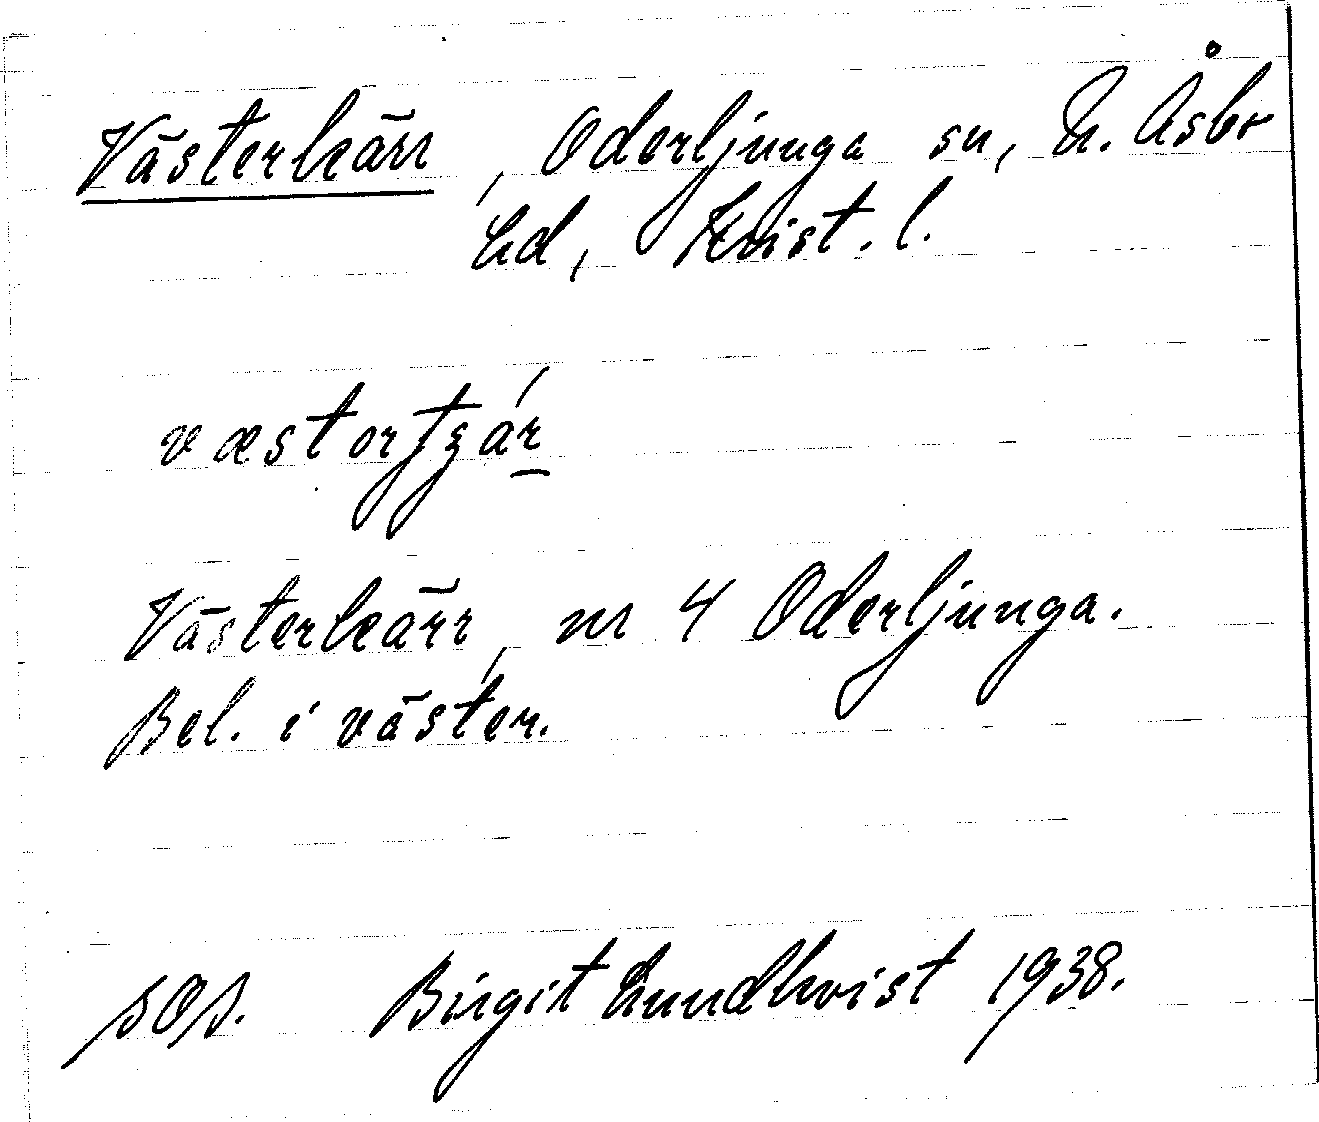 Västerkärr, Oderljunga sn, N. Åsbo
hd, Krist. l.
Västerkärr, nr 4 Oderljunga.
Bel. i väster.
SOS. Birgit Lundkvist 1938.